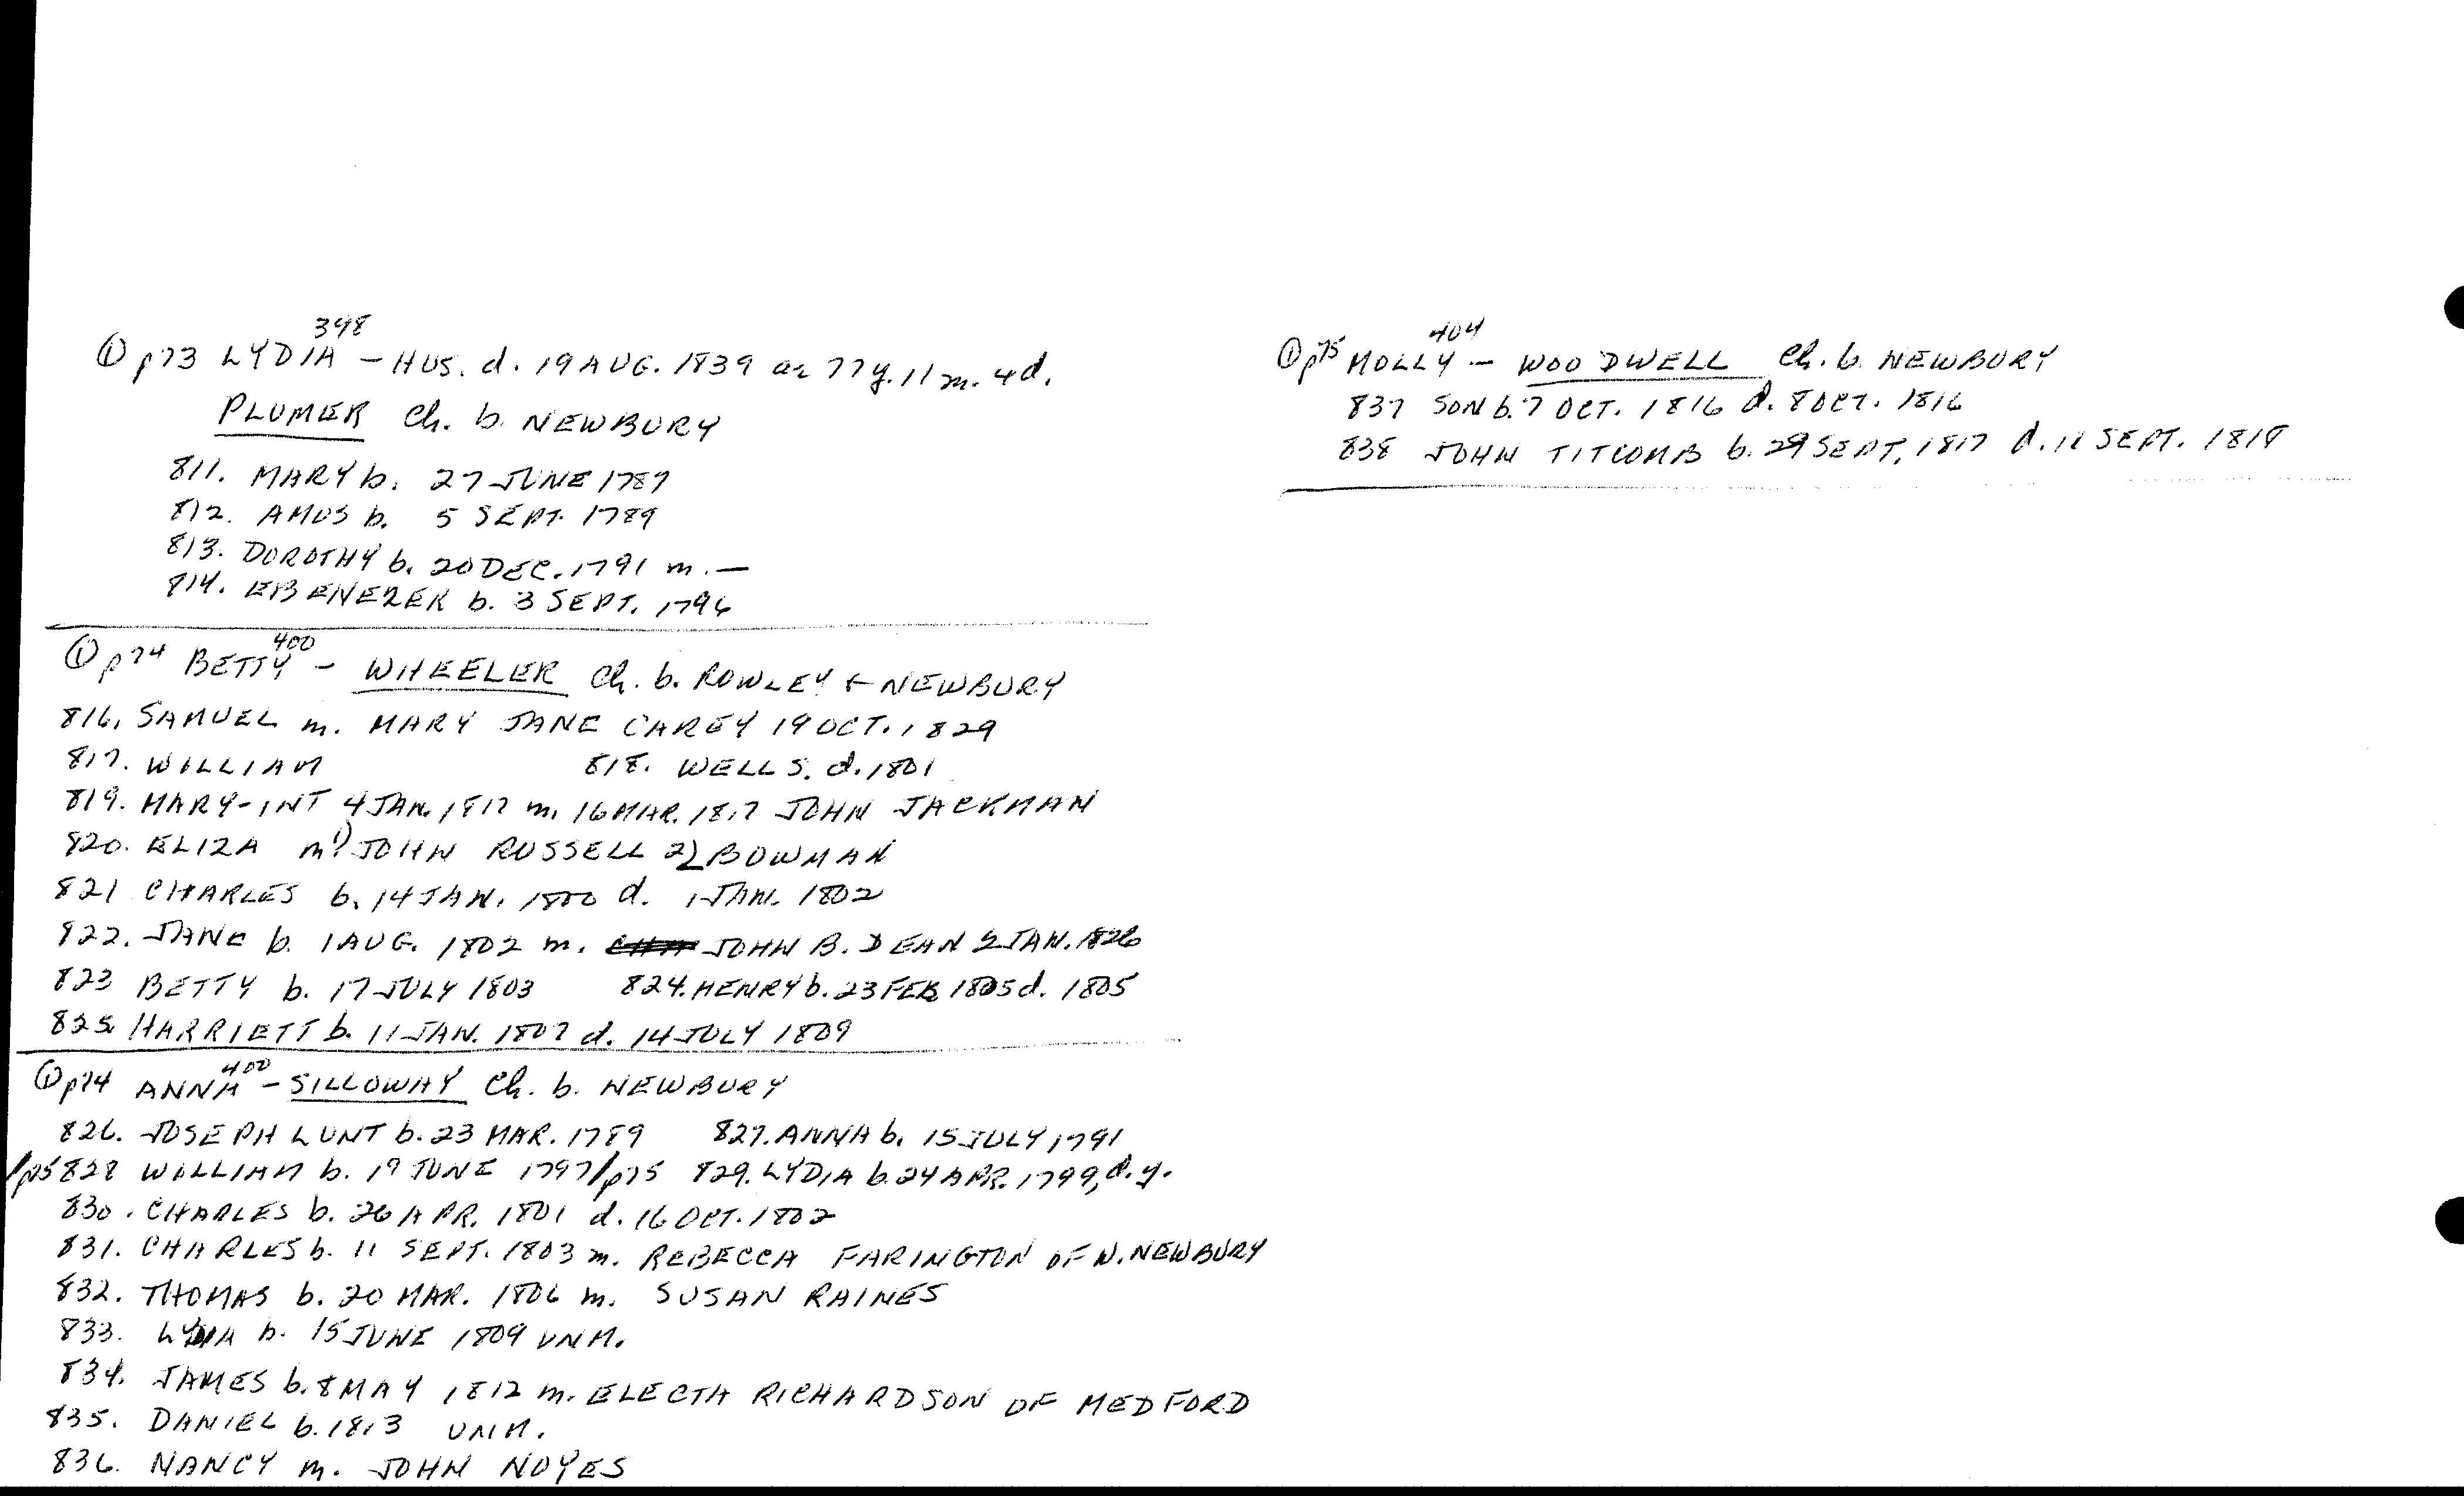 ① p73 LYDIA 398 – HUS. d. 19 AUG. 1839 ae 77 y. 11 m. 4 d.
PLUMER Ch. b. NEWBURY
811. MARY b. 27 JUNE 1787
812. AMOS b. 5 SEPT. 1789
813. DOROTHY b. 20 DEC. 1791 m. —
814. EBENEZER b. 3 SEPT. 1796
① p74 BETTY 400 – WHEELER Ch. b. ROWLEY + NEWBURY
816. SAMUEL m. MARY JANE CAREY 19 OCT. 1829
817. WILLIAM 818. WELLS. d. 1801
819. MARY-INT 4 JAN. 1817 m. 16 MAR. 1817 JOHN JACKMAN
820. ELIZA m 1) JOHN RUSSELL 2) BOWMAN
821 CHARLES b. 14 JAN. 1800 d. 1 JAN. 1802
822. JANE b. 1 AUG. 1802 m. JOHN B. DEAN 2 JAN. 1826
823 BETTY b. 17 JULY 1803 824. HENRY b. 23 FEB 1805 d. 1805
825. HARRIETT b. 11 JAN. 1807 d. 14 JULY 1809
① p74 ANNA 400 – SILLOWAY Ch. b. NEWBURY
826. JOSEPH LUNT b. 23 MAR. 1789 827. ANNA b. 15 JULY 1791
/p75 828 WILLIAM b. 19 JUNE 1797 /p75 829. LYDIA b. 24 APR. 1799, d.y.
830. CHARLES b. 26 APR. 1801 d. 16 OCT. 1802
831. CHARLES b. 11 SEPT. 1803 m. REBECCA FARINGTON OF W. NEWBURY
832. THOMAS b. 20 MAR. 1806 m. SUSAN RAINES
833. LYDIA b. 15 JUNE 1809 UNM.
834. JAMES b. 8 MAY 1812 m. ELECTA RICHARDSON OF MEDFORD
835. DANIEL b. 1813 UNM.
836. NANCY m. JOHN NOYES
① p75 MOLLY 404 – WOODWELL Ch. b. NEWBURY
837 SON b. 7 OCT. 1816 d. 8 OCT. 1816
838 JOHN TITCOMB b. 29 SEPT. 1817 d. 12 SEPT. 1818